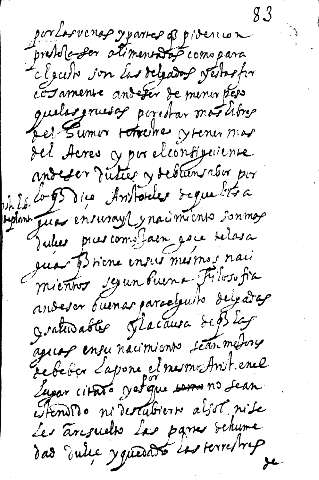 83
por las venas y partes q̃ piden con
presteza ser alimentadas como para
el gusto son las delgadas y estas for
cosamente an de ser de menor peso
que las gruesas por estar mas libres
del humor terrestre y tener mas
del Aereo y por el consiguiente
an de ser dulces y de buen sabor por
lo q̃ dice Aristoteles de que las a
guas en su rayz y nacimiento son mas
dulces pues como Jaen goce de las a
guas q̃ tiene en sus mesmos naci
mientos segun buena filosofia
an de ser buenas para el gusto delgadas
y saludables y la causa de q̃ las
aguas en su nacimiento sean mejores
de beber la pone el mesmo Arist. en el
lugar citado y es por que no se an
estendido ni descubierto al sol ni se
les a resuelto las partes de hume
dad dulce y quedado las terrestres
de